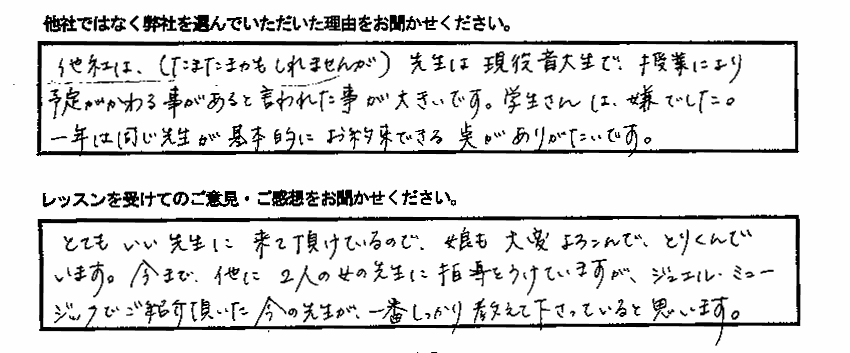 他社ではなく弊社を選んでいただいた理由をお聞かせください。
他社は、(たまたまかもしれませんが) 先生は現役音大生で、授業により
予定がかわる事があると言われた事が大きいです。学生さんは、嫌でした。
一年は同じ先生が基本的にお約束できる点がありがたいです。
レッスンを受けてのご意見・ご感想をお聞かせください。
とてもいい先生に来て頂けているので、娘も大変よろこんで、とりくんで
います。今まで、他に2人の女の先生に指導をうけていますが、ジュエル・ミュー
ジックでご紹介頂いた今の先生が、一番しっかり教えて下さっていると思います。